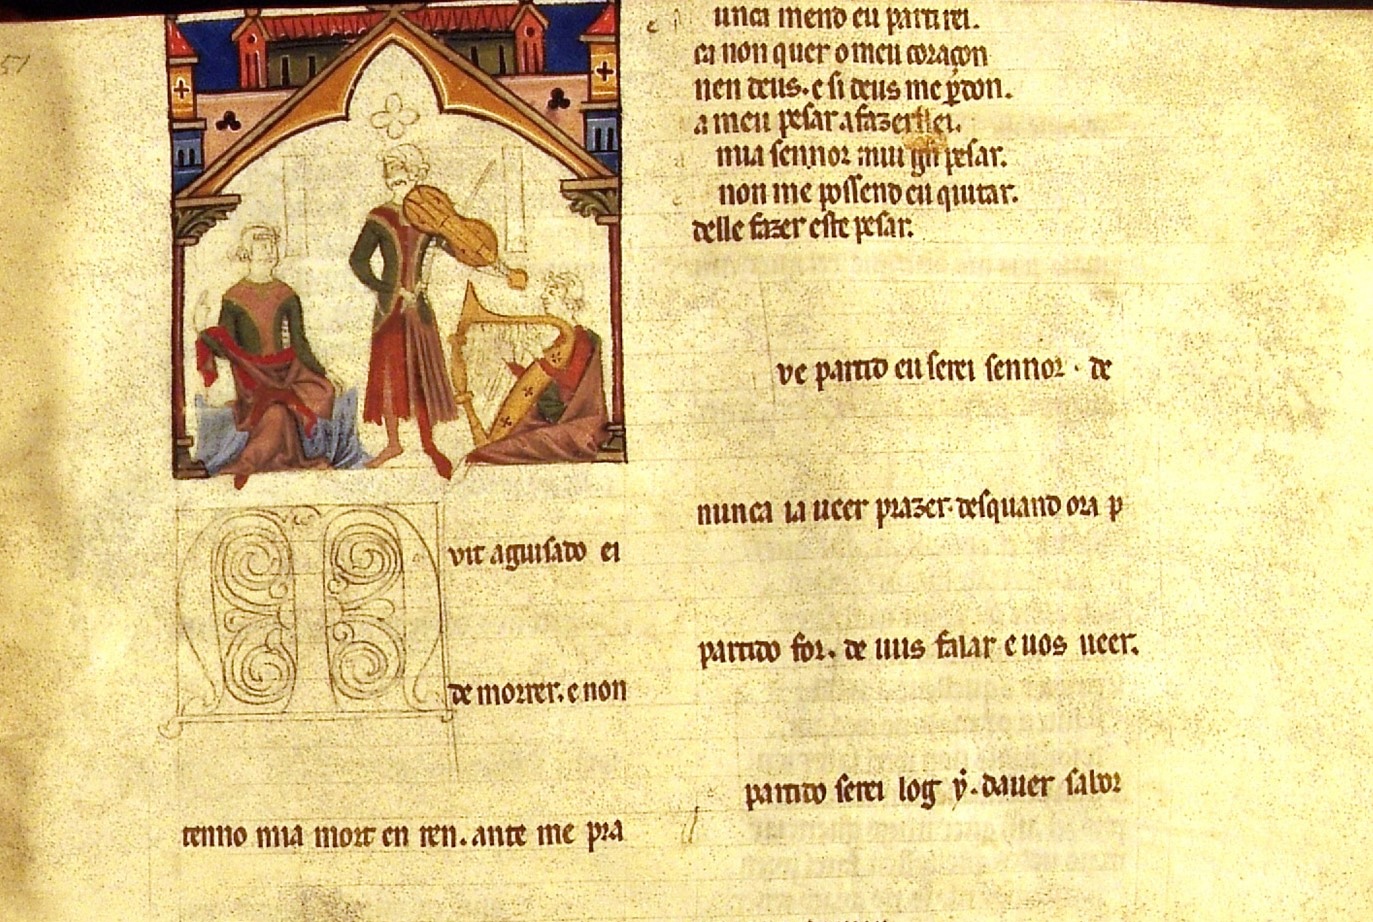 51
vit aguisado ei
de morrer. e non
tenno mia mort en ren. ante me pra
unca meno eu partirei.
ca non quer o meu coraçon
nen deus. e si deus me ꝑdon.
a meu pesar a fazer lei.
mia sennor mui pesar.
non me poss end eu quitar.
delle fazer este pesar.
ve partido eu serei sennor. de
nunca ia ueer prazer. desquand ora p
partido for. de uus falar e uos ueer.
partido serei log ẏ. dauer sabor